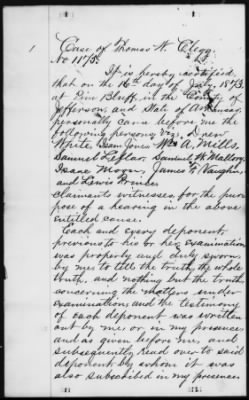 1
Case of Thomas W. Clegg.
No 11875.
It is hereby certified,
that on the 16th day of July 1873
at Pine Bluff, in the County of
Jefferson, and State of Arkansas
personally came before me the
following persons, viz: Drew
White, Isam Jones, Wm A. Mills,
Samuel Leflar, Samuel W. Mallory,
Isaac James F. Vaughn,
and Lewis
claimants witnesses, for the pur
pose of a hearing in the above
entitled cause.
Each and every deponent,
previous to his or her examination
was properly and duly sworn
by me to tell the truth, the whole
truth, and nothing but the truth,
concerning the matters under
examination; and the testimony
of each deponent was written
out by me, or in my presence
and as given before me, and
subsequently read over to said
deponent by whom it was
also subscribed in my presence